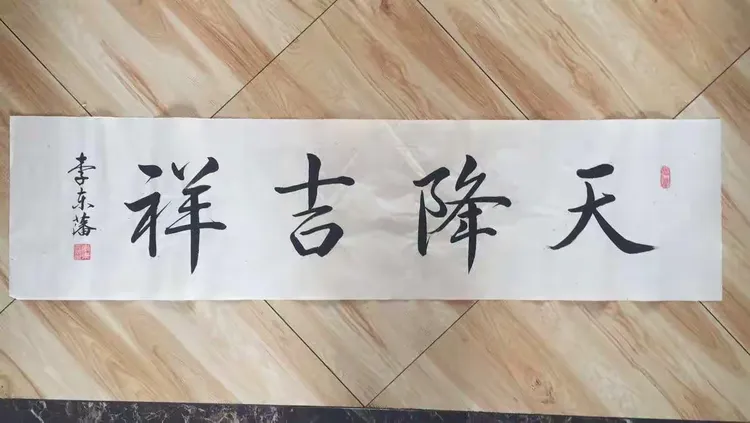 天降吉祥
李东藩